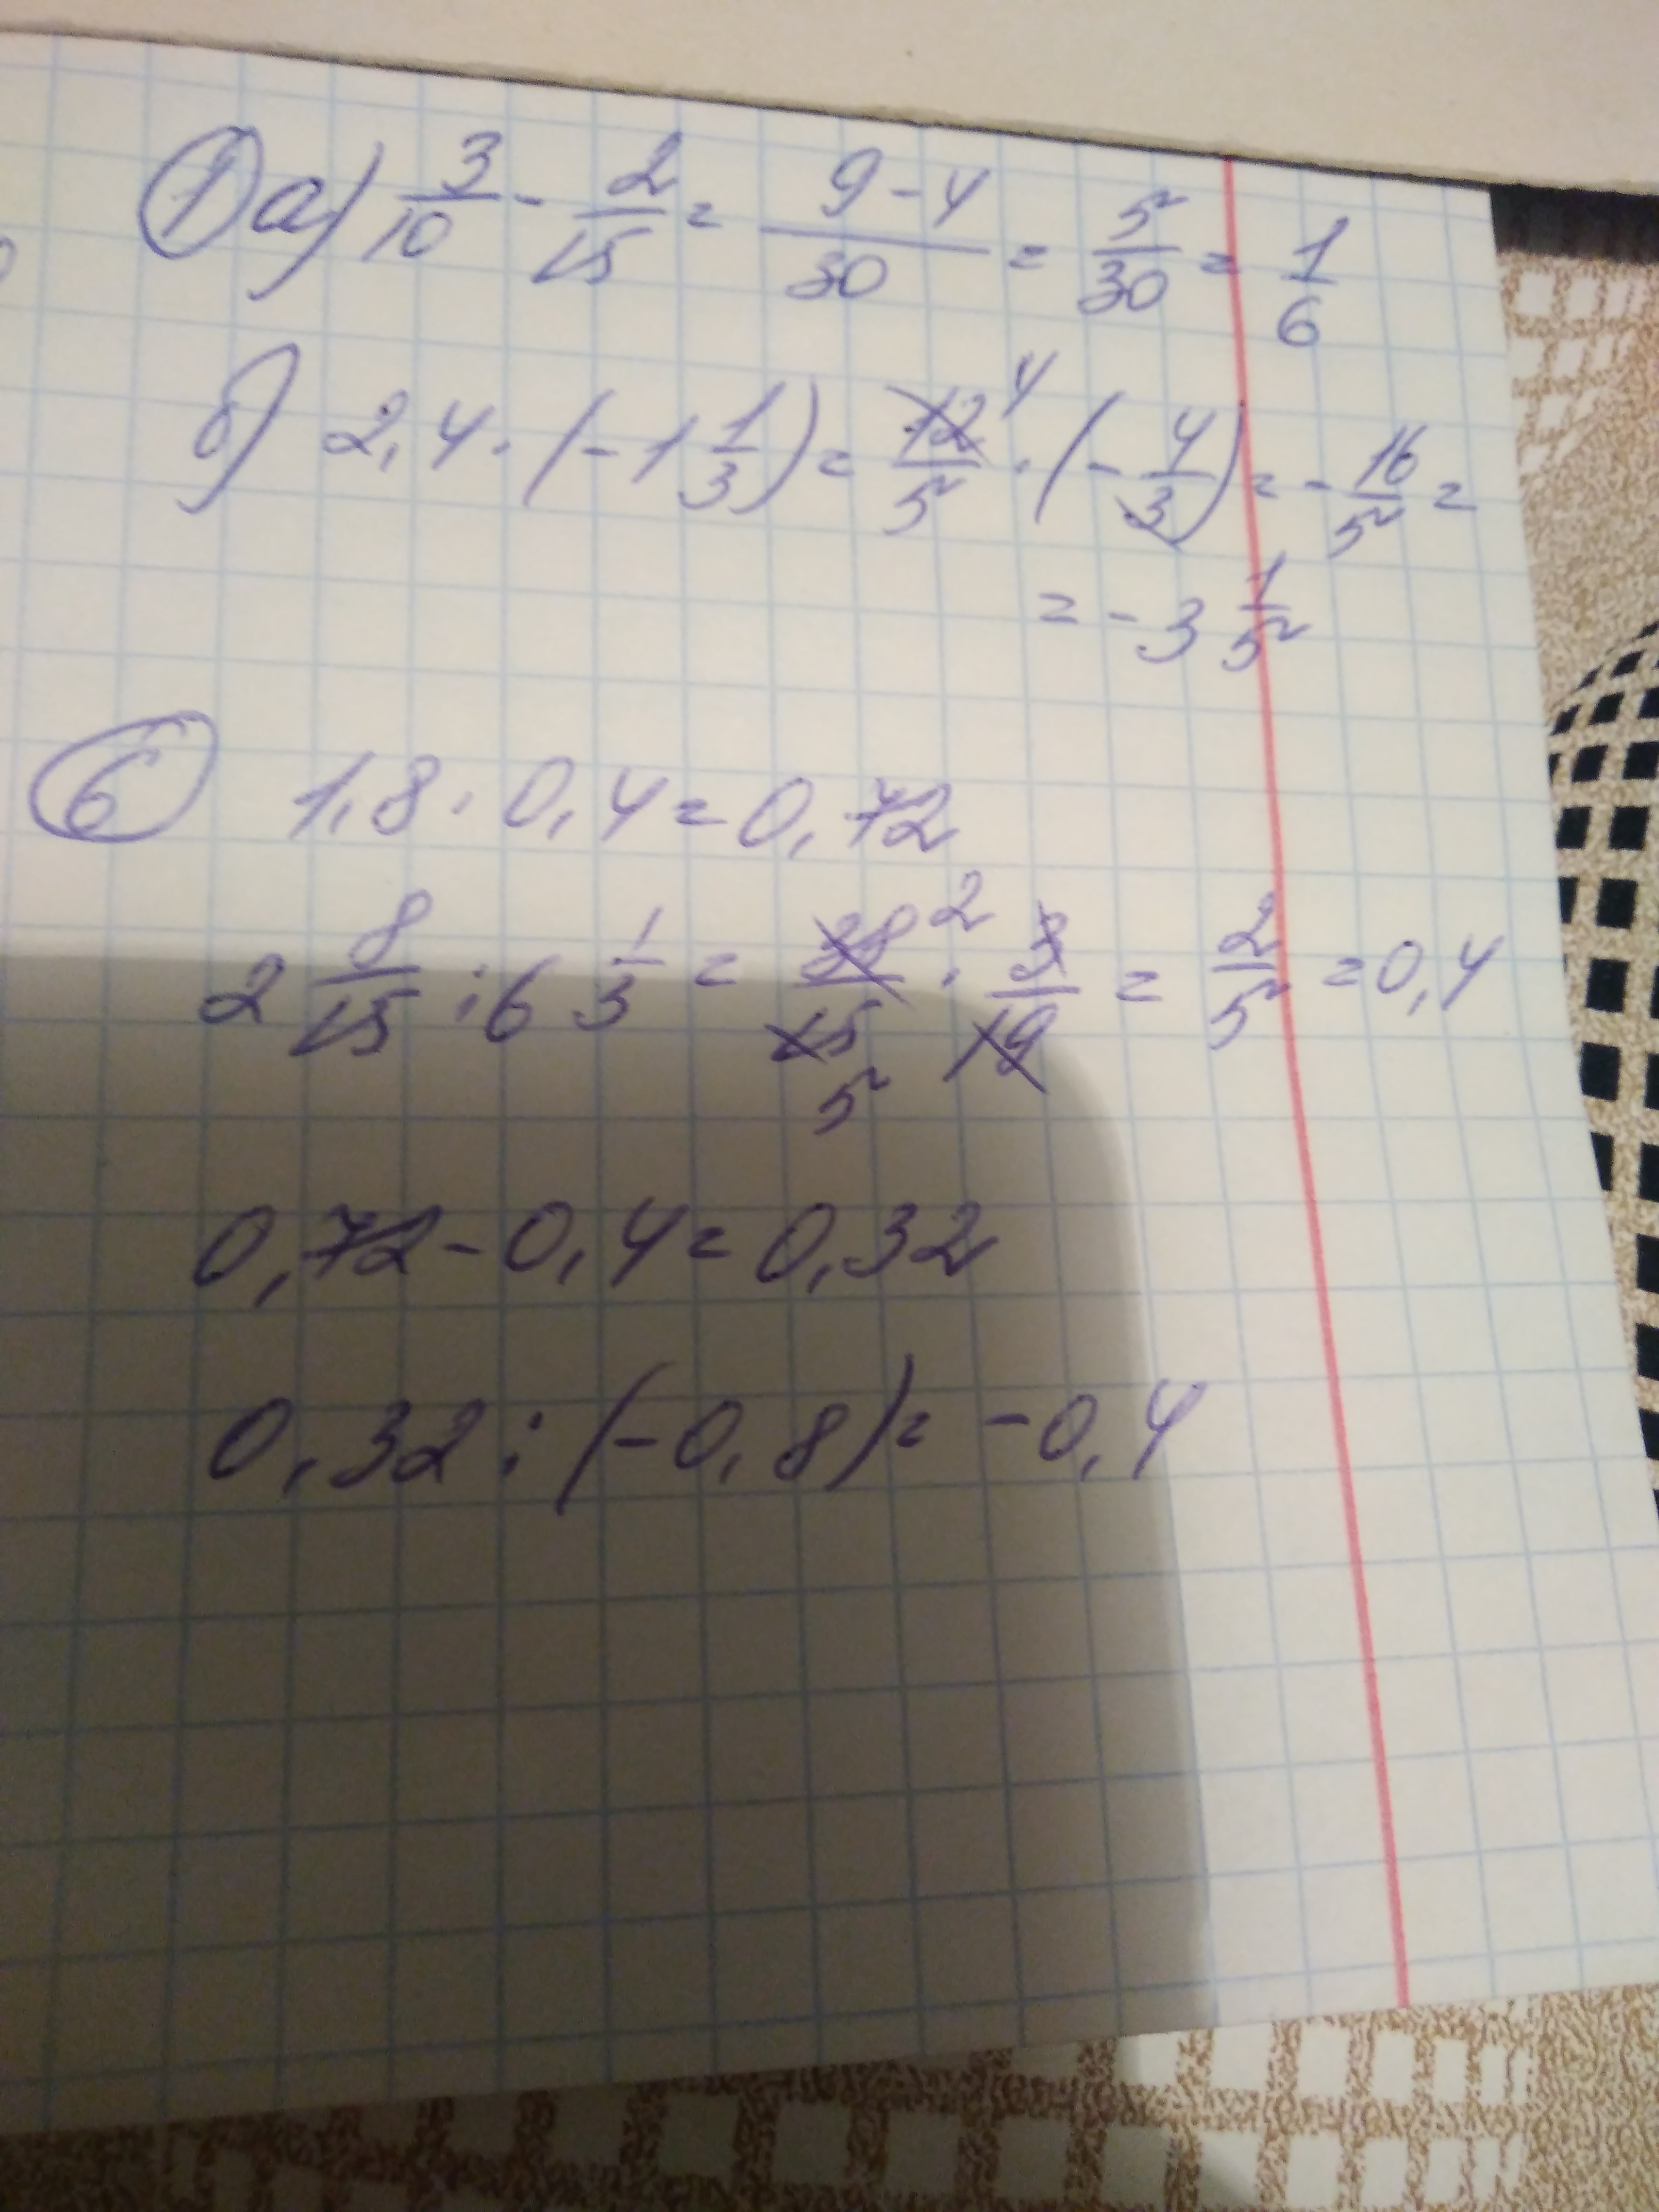 ① а) 3/10 - 2/15 = 9-4/30 = 5/30 = 1/6
б) 2,4 · (-1 1/3) = 12/5 4 · (-4/3) = -16/5 =
= -3 1/5
⑥ 1,8 · 0,4 = 0,72
2 8/15 : 6 1/3 = 38/15 2 5 · 3/19 = 2/5 = 0,4
0,72 - 0,4 = 0,32
0,32 : (-0,8) = -0,4